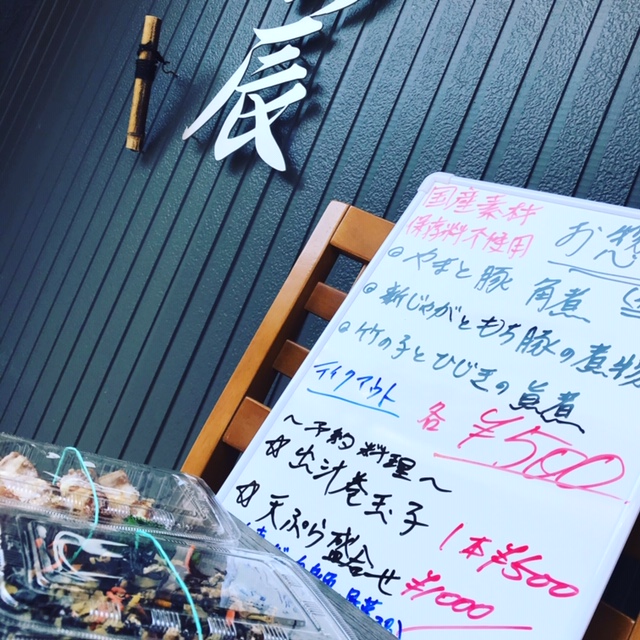 辰
国産素材
保存料不使用
お惣
やまと豚 角煮
新じゃがともち豚の煮物
竹の子とひじきの旨煮
テイクアウト
各 ¥500
〜予約料理〜
出汁巻玉子 1本¥500
天ぷら盛合せ ¥1000